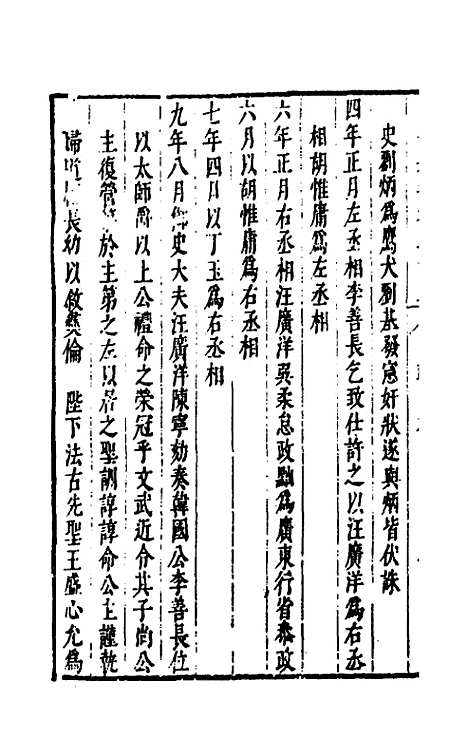 史劉炳為鷹犬劉基發憲奸狀遂與炳皆伏誅
四年正月左丞相李善長乞致仕許之以汪廣洋為右丞
相胡惟庸為左丞相
六年正月右丞相汪廣洋巽柔怠政黜為廣東行省叅政
六月以胡惟庸為右丞相
七年四月以丁玉為右丞相
九年八月御史大夫汪廣洋陳寧劾奏韓國公李善長位
以太師爵以上公禮命之榮冠乎文武近令其子尚公
主復營 於主第之左以居之聖訓諄諄命公主謹執
婦道 長幼以敘彝倫 陛下法古先聖王盛心允為